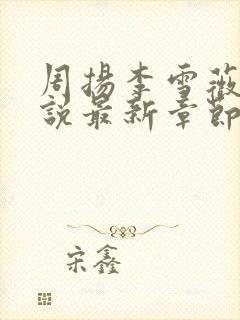 周揚李雪薇
說最新章節
宋鑫